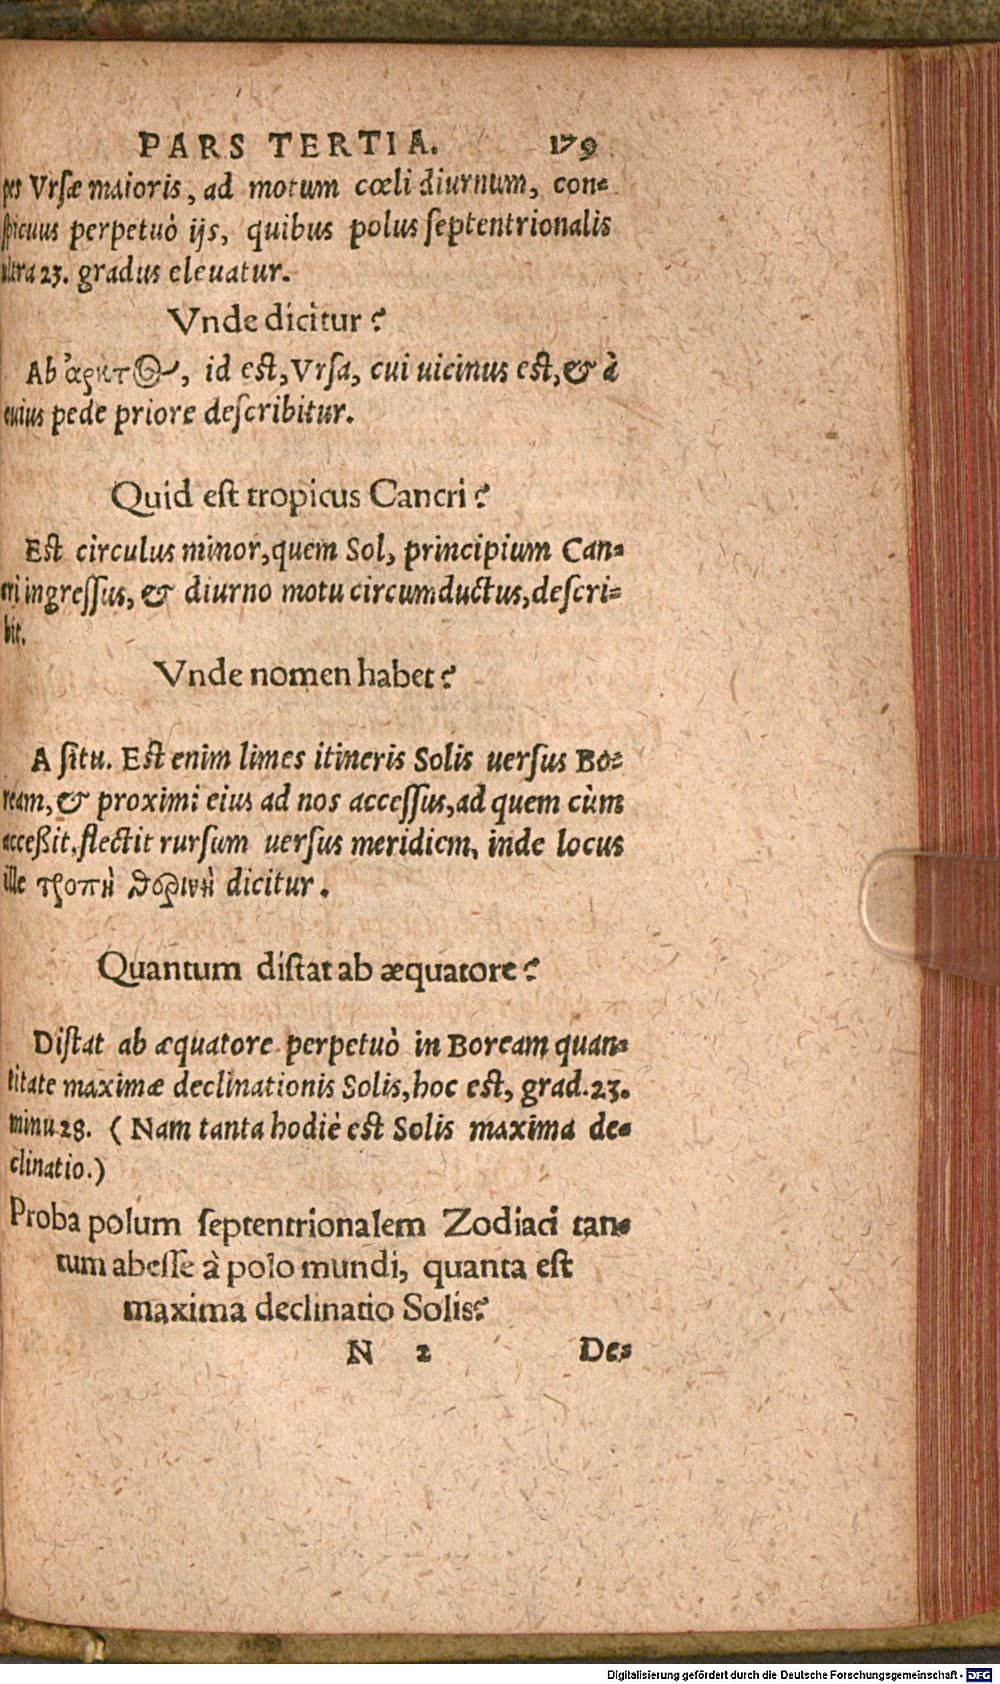 PARS TERTIA. 179
pes Vrsæ maioris, ad motum cœli diurnum, con=
spicuus perpetuò ijs, quibus polus septentrionalis
ultra 23. gradus eleuatur.
Vnde dicitur?
Ab ἄρκτος, id est, Vrsa, cui uicinus est, & à
cuius pede priore describitur.
Quid est tropicus Cancri?
Est circulus minor, quem Sol, principium Can=
cri ingressus, & diurno motu circumductus, descri=
bit.
Vnde nomen habet?
A situ. Est enim limes itineris Solis uersus Bo=
ream, & proximi eius ad nos accessus, ad quem cùm
acceßit, flectit rursum uersus meridiem, inde locus
ille τροπὴ θερινὴ dicitur.
Quantum distat ab æquatore?
Distat ab æquatore perpetuò in Boream quan=
titate maximæ declinationis Solis, hoc est, grad. 23.
minu 28. (Nam tanta hodiè est Solis maxima de=
clinatio.)
Proba polum septentrionalem Zodiaci tan=
tum abesse à polo mundi, quanta est
maxima declinatio Solis?
N 2 De=
Digitalisierung gefördert durch die Deutsche Forschungsgemeinschaft - DFG